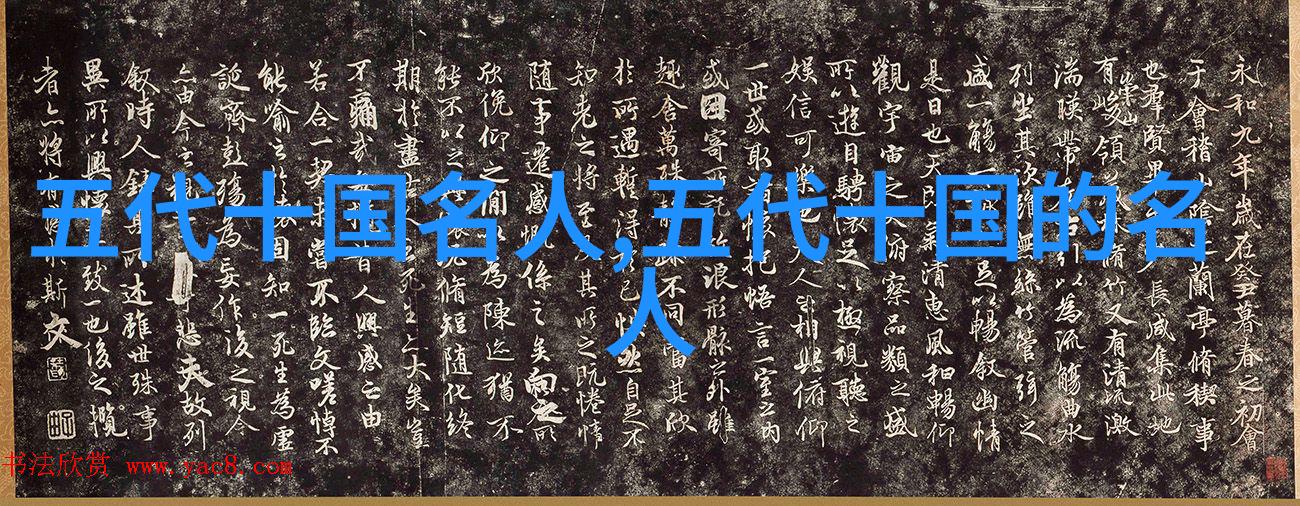 五代十国名人,五代十国的名
人
永和九年歲在癸丑暮春之初會
于會稽山陰蘭亭脩稧事
也羣賢畢長咸集此地
有崇山峻領脩竹又有清流激
湍暎帶引以為流觴曲水
列坐其次雖無絲竹管弦之
盛一觴一足以暢敘幽情
是日也天朗氣清惠風和暢仰
觀宇宙之俯察品類之盛
所以遊目騁懷足以極視聽之
娛信可樂也人相與俯仰
一世或取懷抱悟言一室之內
或因寄所託浪形骸之外雖
趣舍萬殊不同當其欣
於所遇暫得己快然自足不
知老之將至其所之既惓情
隨事遷感慨係之矣向之所
欣俛仰之閒以為陳迹猶不
能不以之脩短隨化終
期於盡死生亦大矣豈
不痛哉昔人興感之由
若合一契嘗不臨文嗟悼不
能喻之於懷固知一死生為虛
誕齊彭殤為妄作後之視今
亦由今之悲夫故列
敘時人錄其所述雖世殊事
異所以興懷致一也後之攬
者亦將有斯文
书法欣赏 www.yac8.com